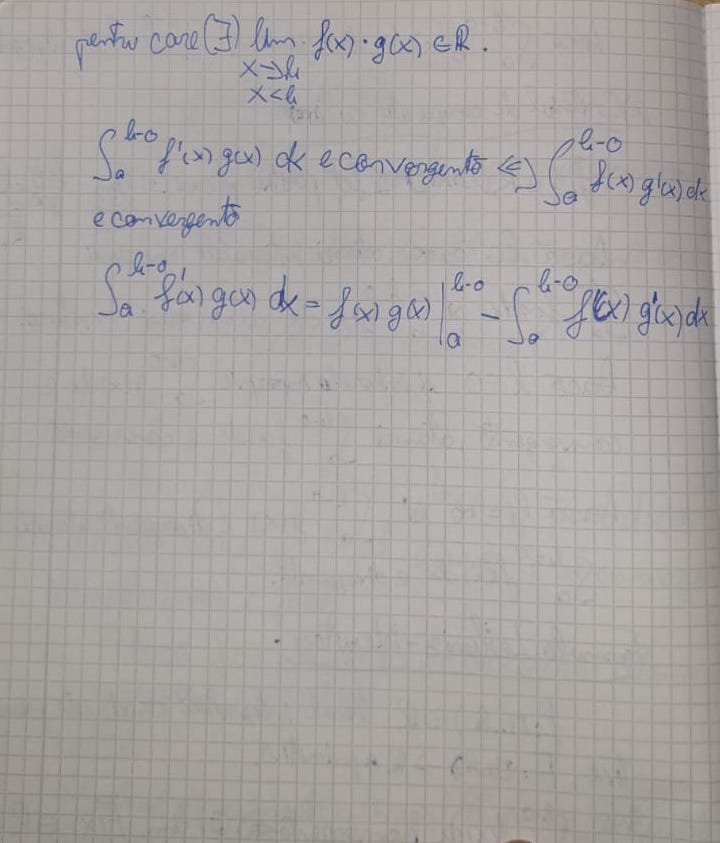 pentru care (∃) lim f(x)·g(x) ∈ ℝ.
x→b
x<b
∫_a^{b-0} f'(x) g(x) dx e convergentă ⇔ ∫_a^{b-0} f(x) g'(x) dx
e convergentă
∫_a^{b-0} f'(x) g(x) dx = f(x) g(x) |_a^{b-0} - ∫_a^{b-0} f(x) g'(x) dx